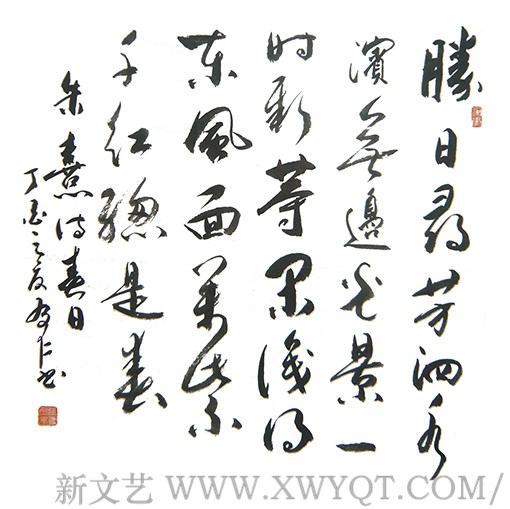 勝日尋芳泗水
濱無邊光景一
時新等閒識得
東風面萬紫
千紅總是春
朱熹詩春日
丁酉之夏書
新文艺 WWW.XWYQT.COM/